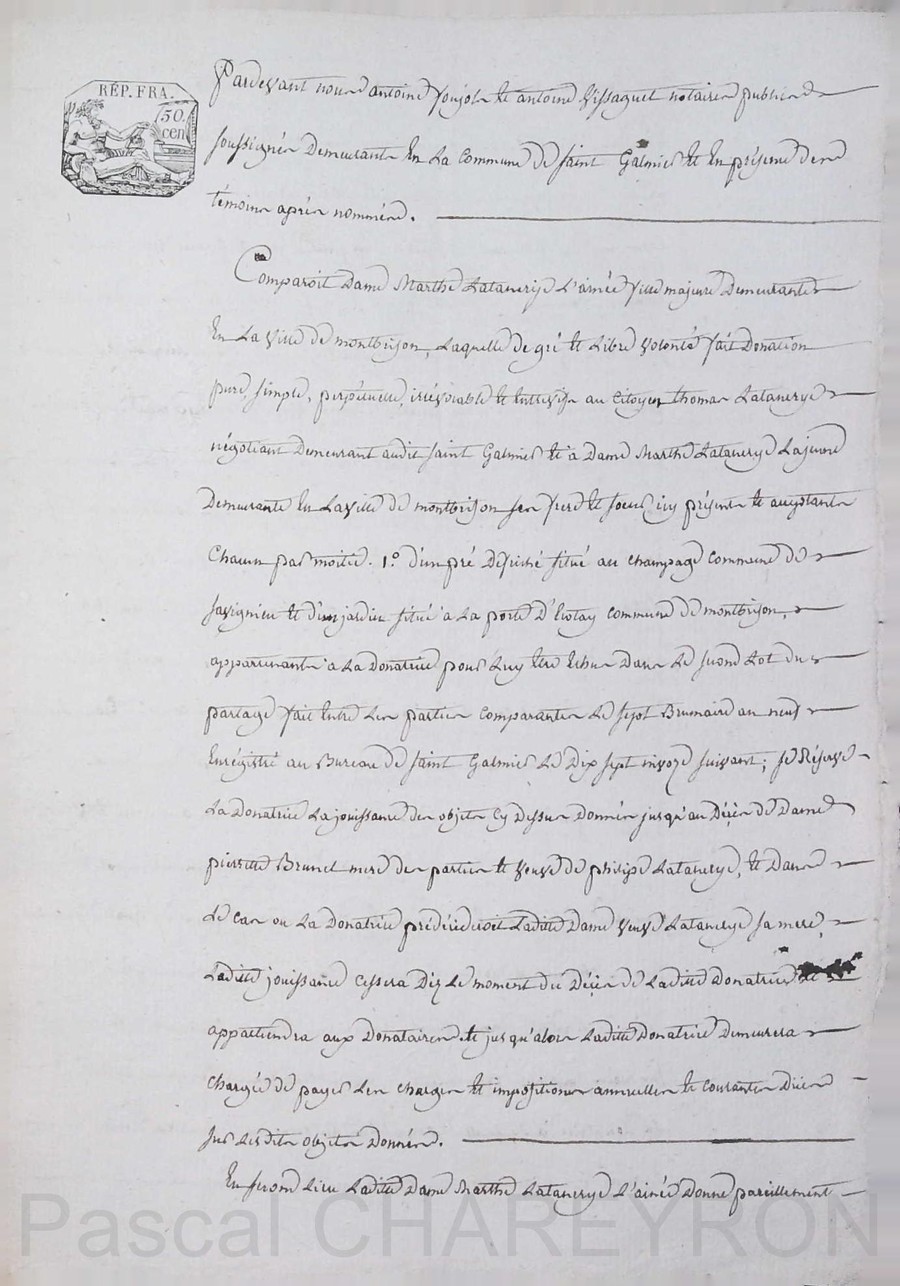 RÉP. FRA.
50.
cen
Pardevant nous antoine Poujols et antoine Vissaguet notaires publics
soussignés Demeurants En La Commune de saint Galmier et En présence des
témoins après nommés.
Comparoit Dame Marthe Latanerye L'ainée fille majeure Demeurante
En La Ville de montbrison, Laquelle de gré et Libre volonté fait Donation
pure, simple, perpétuelle, irrévocable et Entrevifs au Citoyen thomas Latanerye
négotiant Demeurant audit saint Galmier et à Dame Marthe Latanerye Lajeune
Demeurante En La Ville de montbrison ses frere et soeur icy présents et acceptants
Chacun par moitié. 1.° d'un pré Défriché situé au champage Commune de
savignieu et d'un jardin situé à La porte D'Ecotay commune de montbrison,
appartenants à La Donatrice pour Luy Etre Echus Dans Le second Lot du
partage fait Entre Les parties comparantes Le sept Brumaire an neuf
Enrégistré au Bureau de saint Galmier Le Dix sept nivose suivant; se Réserve
La Donatrice La jouissance des objets Cy Dessus Donnés jusqu'au Décès de Dame
pierrette Brunel mere des parties et Veuve de philipe Latanerye, et Dans
Le cas ou La Donatrice prédécéderoit Ladite Dame veuve Latanerye sa mere,
Ladite jouissance cessera Dez Le moment du Décès de Ladite Donatrice et
appartiendra aux Donataires et jusqu'alors Ladite Donatrice Demeurera
chargée de payer Les charges et impositions annuelles et courantes Dües
sur Lesdits objets Donnés.
En second Lieu Ladite Dame Marthe Latanerye L'ainée Donne pareillement
Pascal CHAREYRON